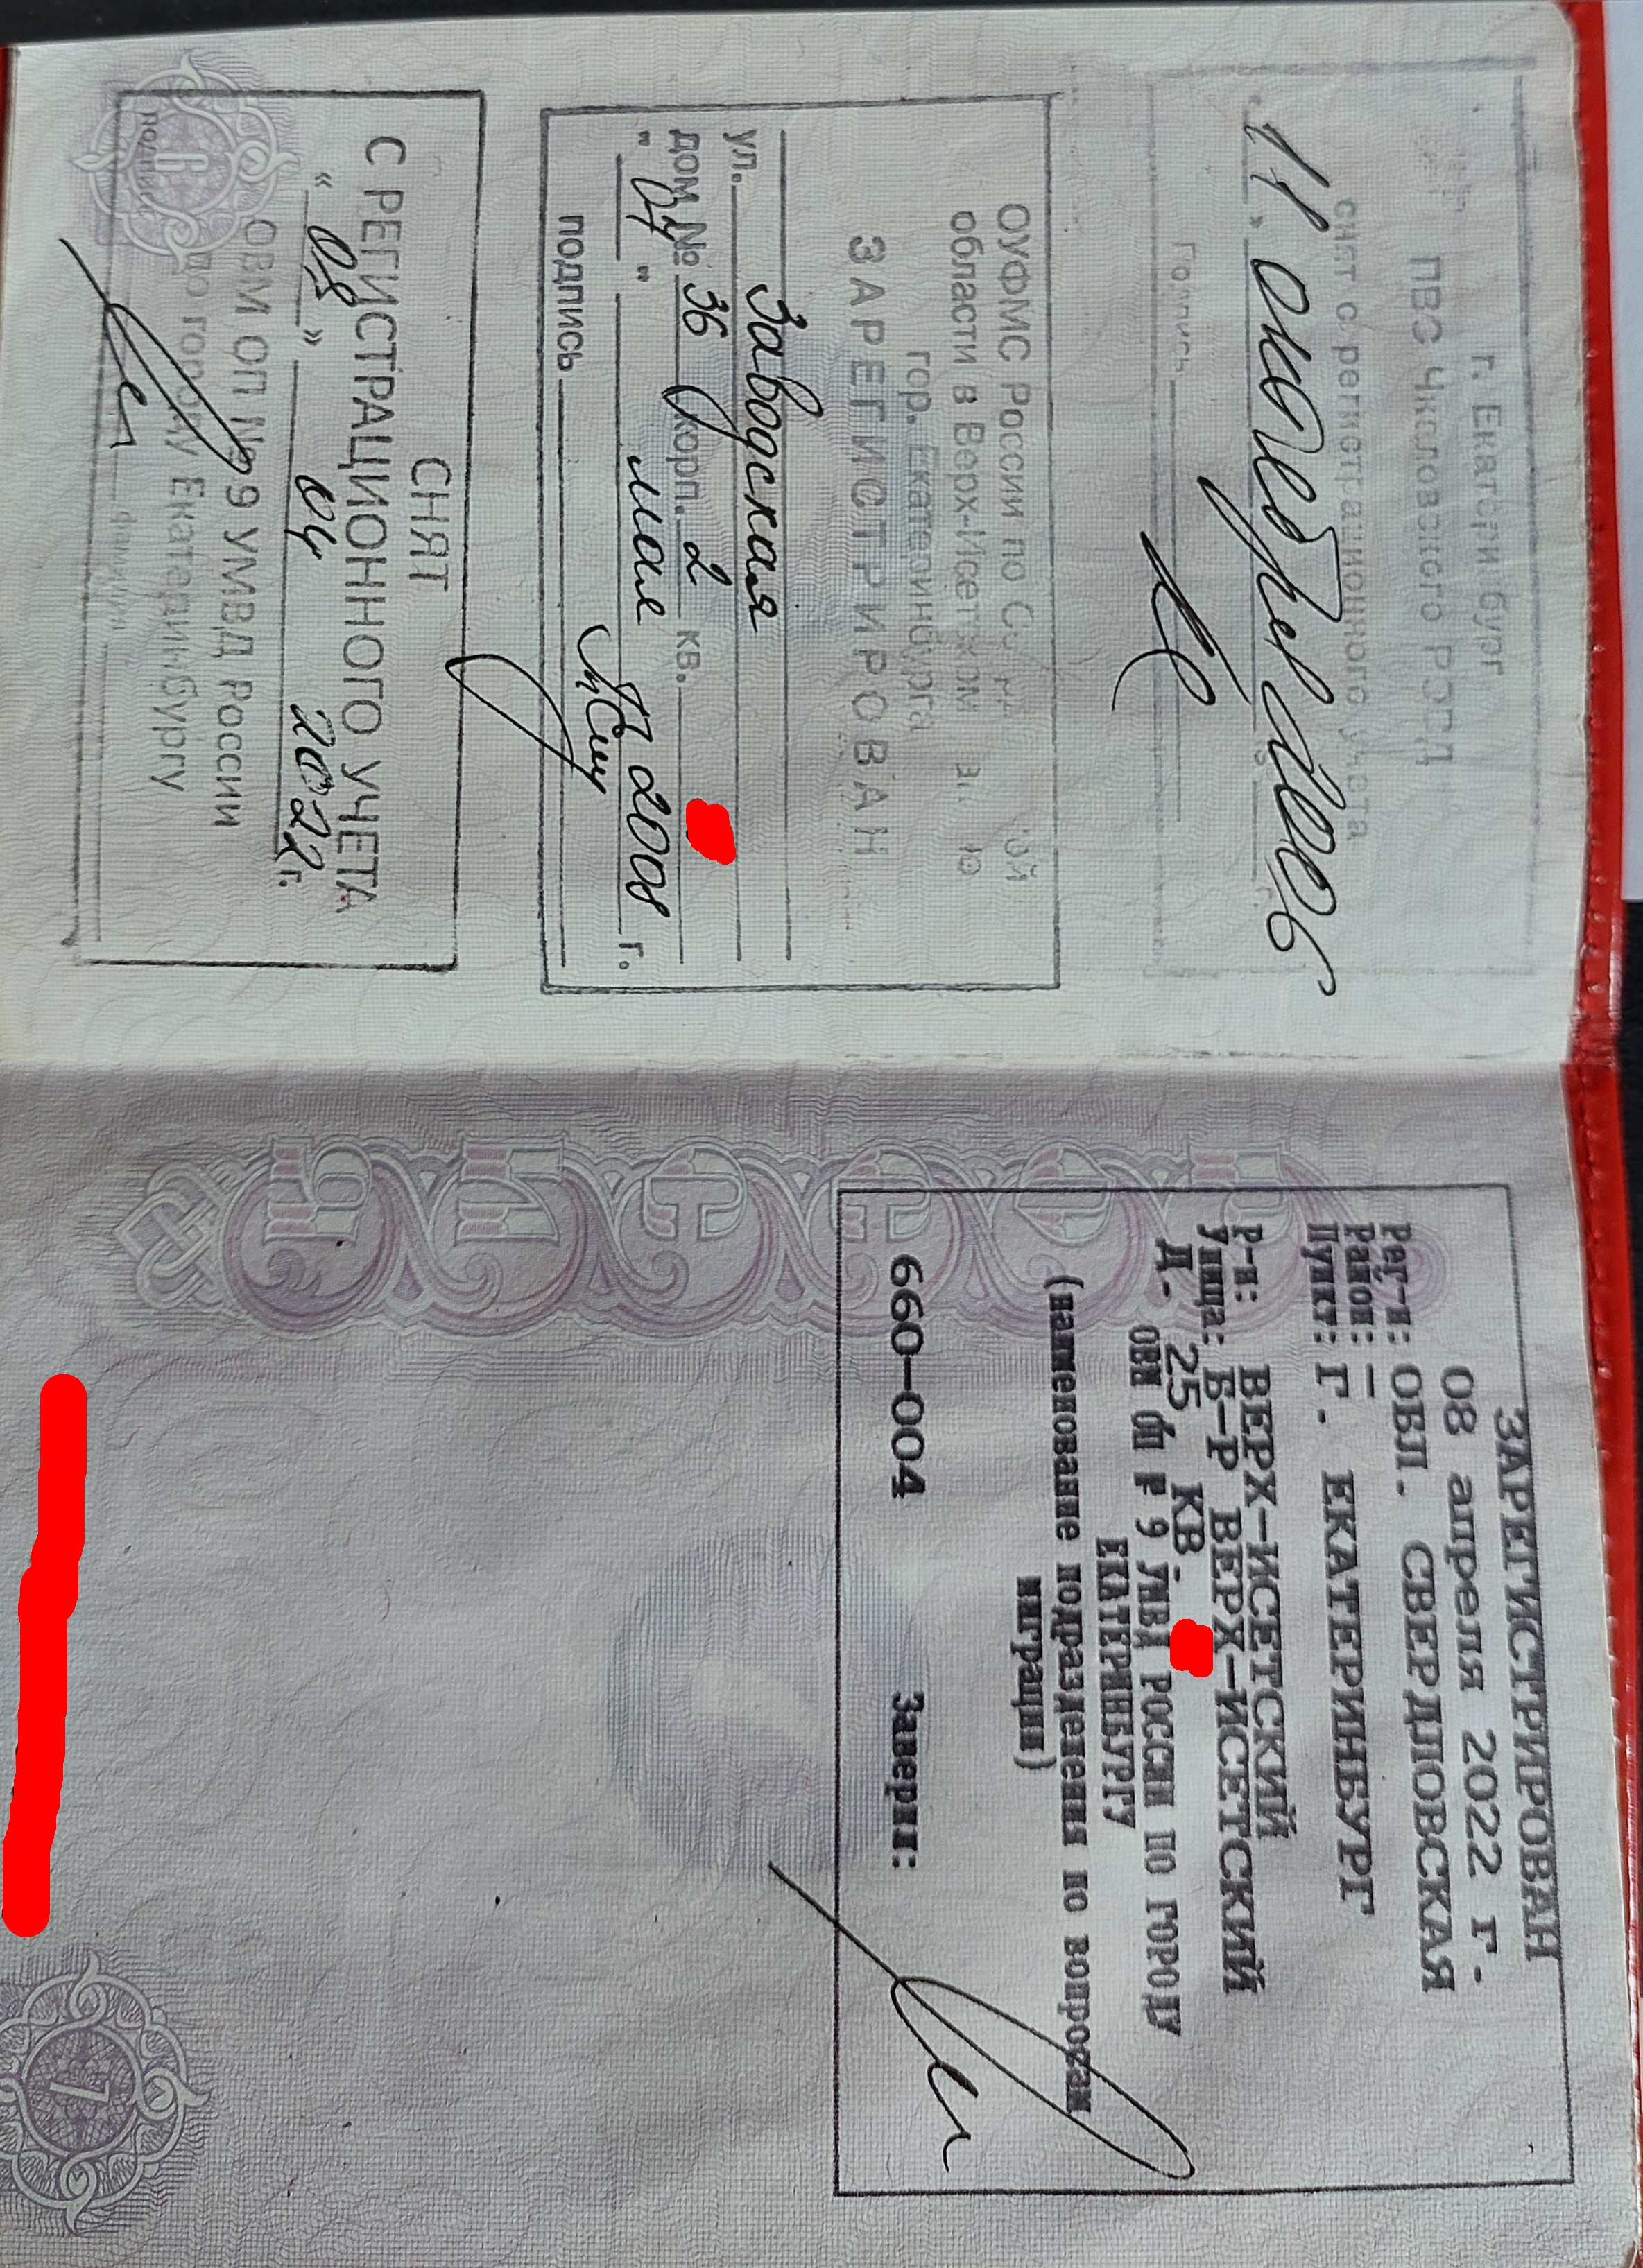 г. Екатеринбург
ПВС Чкаловского РОВД
снят с регистрационного учета
11 » октября 2006
Подпись
ОУФМС России по
области в Верх-Исетском
гор. Екатеринбурга
ЗАРЕГИСТРИРОВАН
ул. Заводская
дом № 36 корп. 2 кв.
" 04 " мая 2008 г.
подпись
СНЯТ
С РЕГИСТРАЦИОННОГО УЧЕТА
« 08 » 04 2022 г.
ОВМ ОП №9 УМВД России
по городу Екатеринбургу
подпись фамилия
ЗАРЕГИСТРИРОВАН
08 апреля 2022 г.
Рег-н: ОБЛ. СВЕРДЛОВСКАЯ
Район: —
Пункт: Г. ЕКАТЕРИНБУРГ
Р-н: ВЕРХ-ИСЕТСКИЙ
Улица: Б-Р ВЕРХ-ИСЕТСКИЙ
Д. 25 КВ.
ОВМ ОП № 9 УМВД РОССИИ ПО ГОРОДУ
ЕКАТЕРИНБУРГУ
(наименование подразделения по вопросам
миграции)
660-004 Заверил:
7